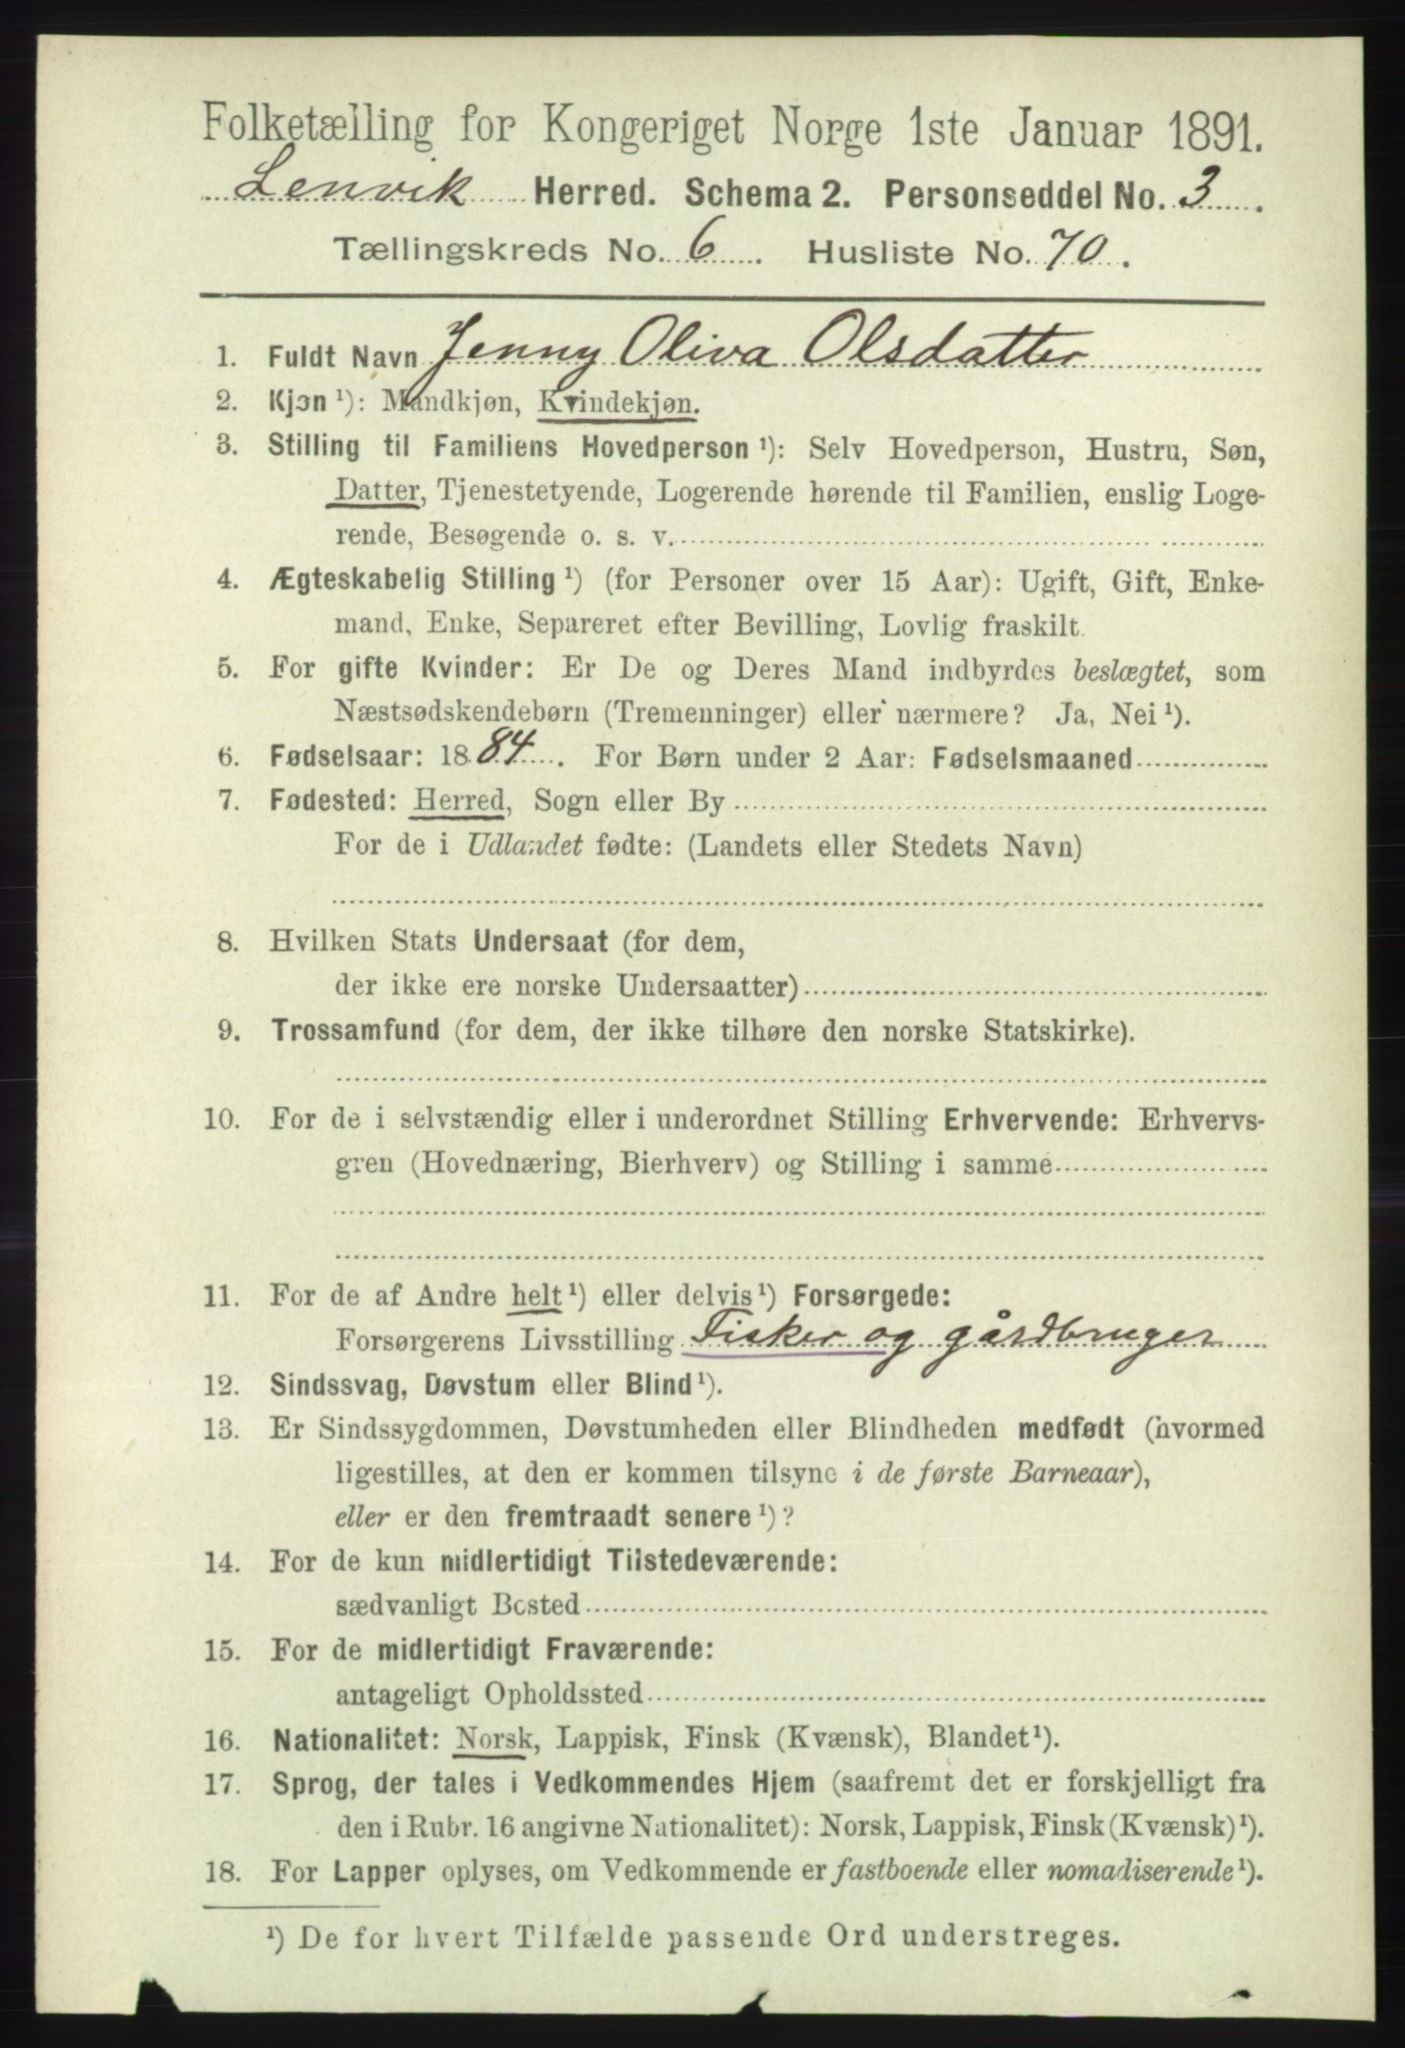 Folketælling for Kongeriget Norge 1ste Januar 1891.
Lenvik Herred. Schema 2. Personseddel No. 3.
Tællingskreds No. 6. Husliste No. 70.
1. Fuldt Navn Jenny Oliva Olsdatter
2. Kjøn ¹): Mandkjøn, Kvindekjøn.
3. Stilling til Familiens Hovedperson ¹): Selv Hovedperson, Hustru, Søn,
Datter, Tjenestetyende, Logerende hørende til Familien, enslig Loge-
rende, Besøgende o. s. v.
4. Ægteskabelig Stilling ¹) (for Personer over 15 Aar): Ugift, Gift, Enke-
mand, Enke, Separeret efter Bevilling, Lovlig fraskilt.
5. For gifte Kvinder: Er De og Deres Mand indbyrdes beslægtet, som
Næstsødskendebørn (Tremenninger) eller nærmere? Ja, Nei ¹).
6. Fødselsaar: 1884. For Børn under 2 Aar: Fødselsmaaned
7. Fødested: Herred, Sogn eller By
For de i Udlandet fødte: (Landets eller Stedets Navn)
8. Hvilken Stats Undersaat (for dem,
der ikke ere norske Undersaatter)
9. Trossamfund (for dem, der ikke tilhøre den norske Statskirke).
10. For de i selvstændig eller i underordnet Stilling Erhvervende: Erhvervs-
gren (Hovednæring, Bierhverv) og Stilling i samme
11. For de af Andre helt ¹) eller delvis ¹) Forsørgede:
Forsørgerens Livsstilling Fisker og gårdbruger
12. Sindssvag, Døvstum eller Blind ¹).
13. Er Sindssygdommen, Døvstumheden eller Blindheden medfødt (hvormed
ligestilles, at den er kommen tilsyne i de første Barneaar),
eller er den fremtraadt senere ¹)?
14. For de kun midlertidigt Tilstedeværende:
sædvanligt Bosted
15. For de midlertidigt Fraværende:
antageligt Opholdssted
16. Nationalitet: Norsk, Lappisk, Finsk (Kvænsk), Blandet ¹).
17. Sprog, der tales i Vedkommendes Hjem (saafremt det er forskjelligt fra
den i Rubr. 16 angivne Nationalitet): Norsk, Lappisk, Finsk (Kvænsk) ¹).
18. For Lapper oplyses, om Vedkommende er fastboende eller nomadiserende ¹).
¹) De for hvert Tilfælde passende Ord understreges.